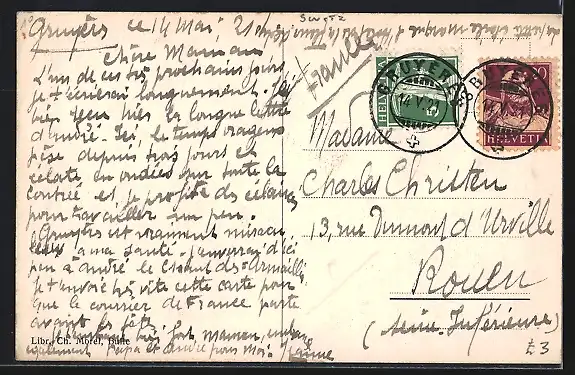 Gruyères ce 14 Mai, 21
Chère Maman
L'un de ces très prochains jours
je t'écrirai longuement. J'ai
bien reçu hier la longue lettre
d'André. Ici, le temps orageux
pèse depuis trois jours et
éclate en ondées sur toute la
contrée et je profite des
pour travailler un peu.
Gruyères est vraiment
à ma santé. J'enverrai d'ici
peu à André le
Je t'envoie très vite cette carte pour
que le courrier de France parte
avant les fêtes
fort, Maman,
également Papa et André pour moi.
Libr. Ch. Morel, Bulle
France
HELVETIA
GRUYÈRES
14.V.21
GRUYÈRES
HELVETIA
Madame
Charles Christen
13, rue Dumont d'Urville
Rouen
(Seine-Inférieure)
£3